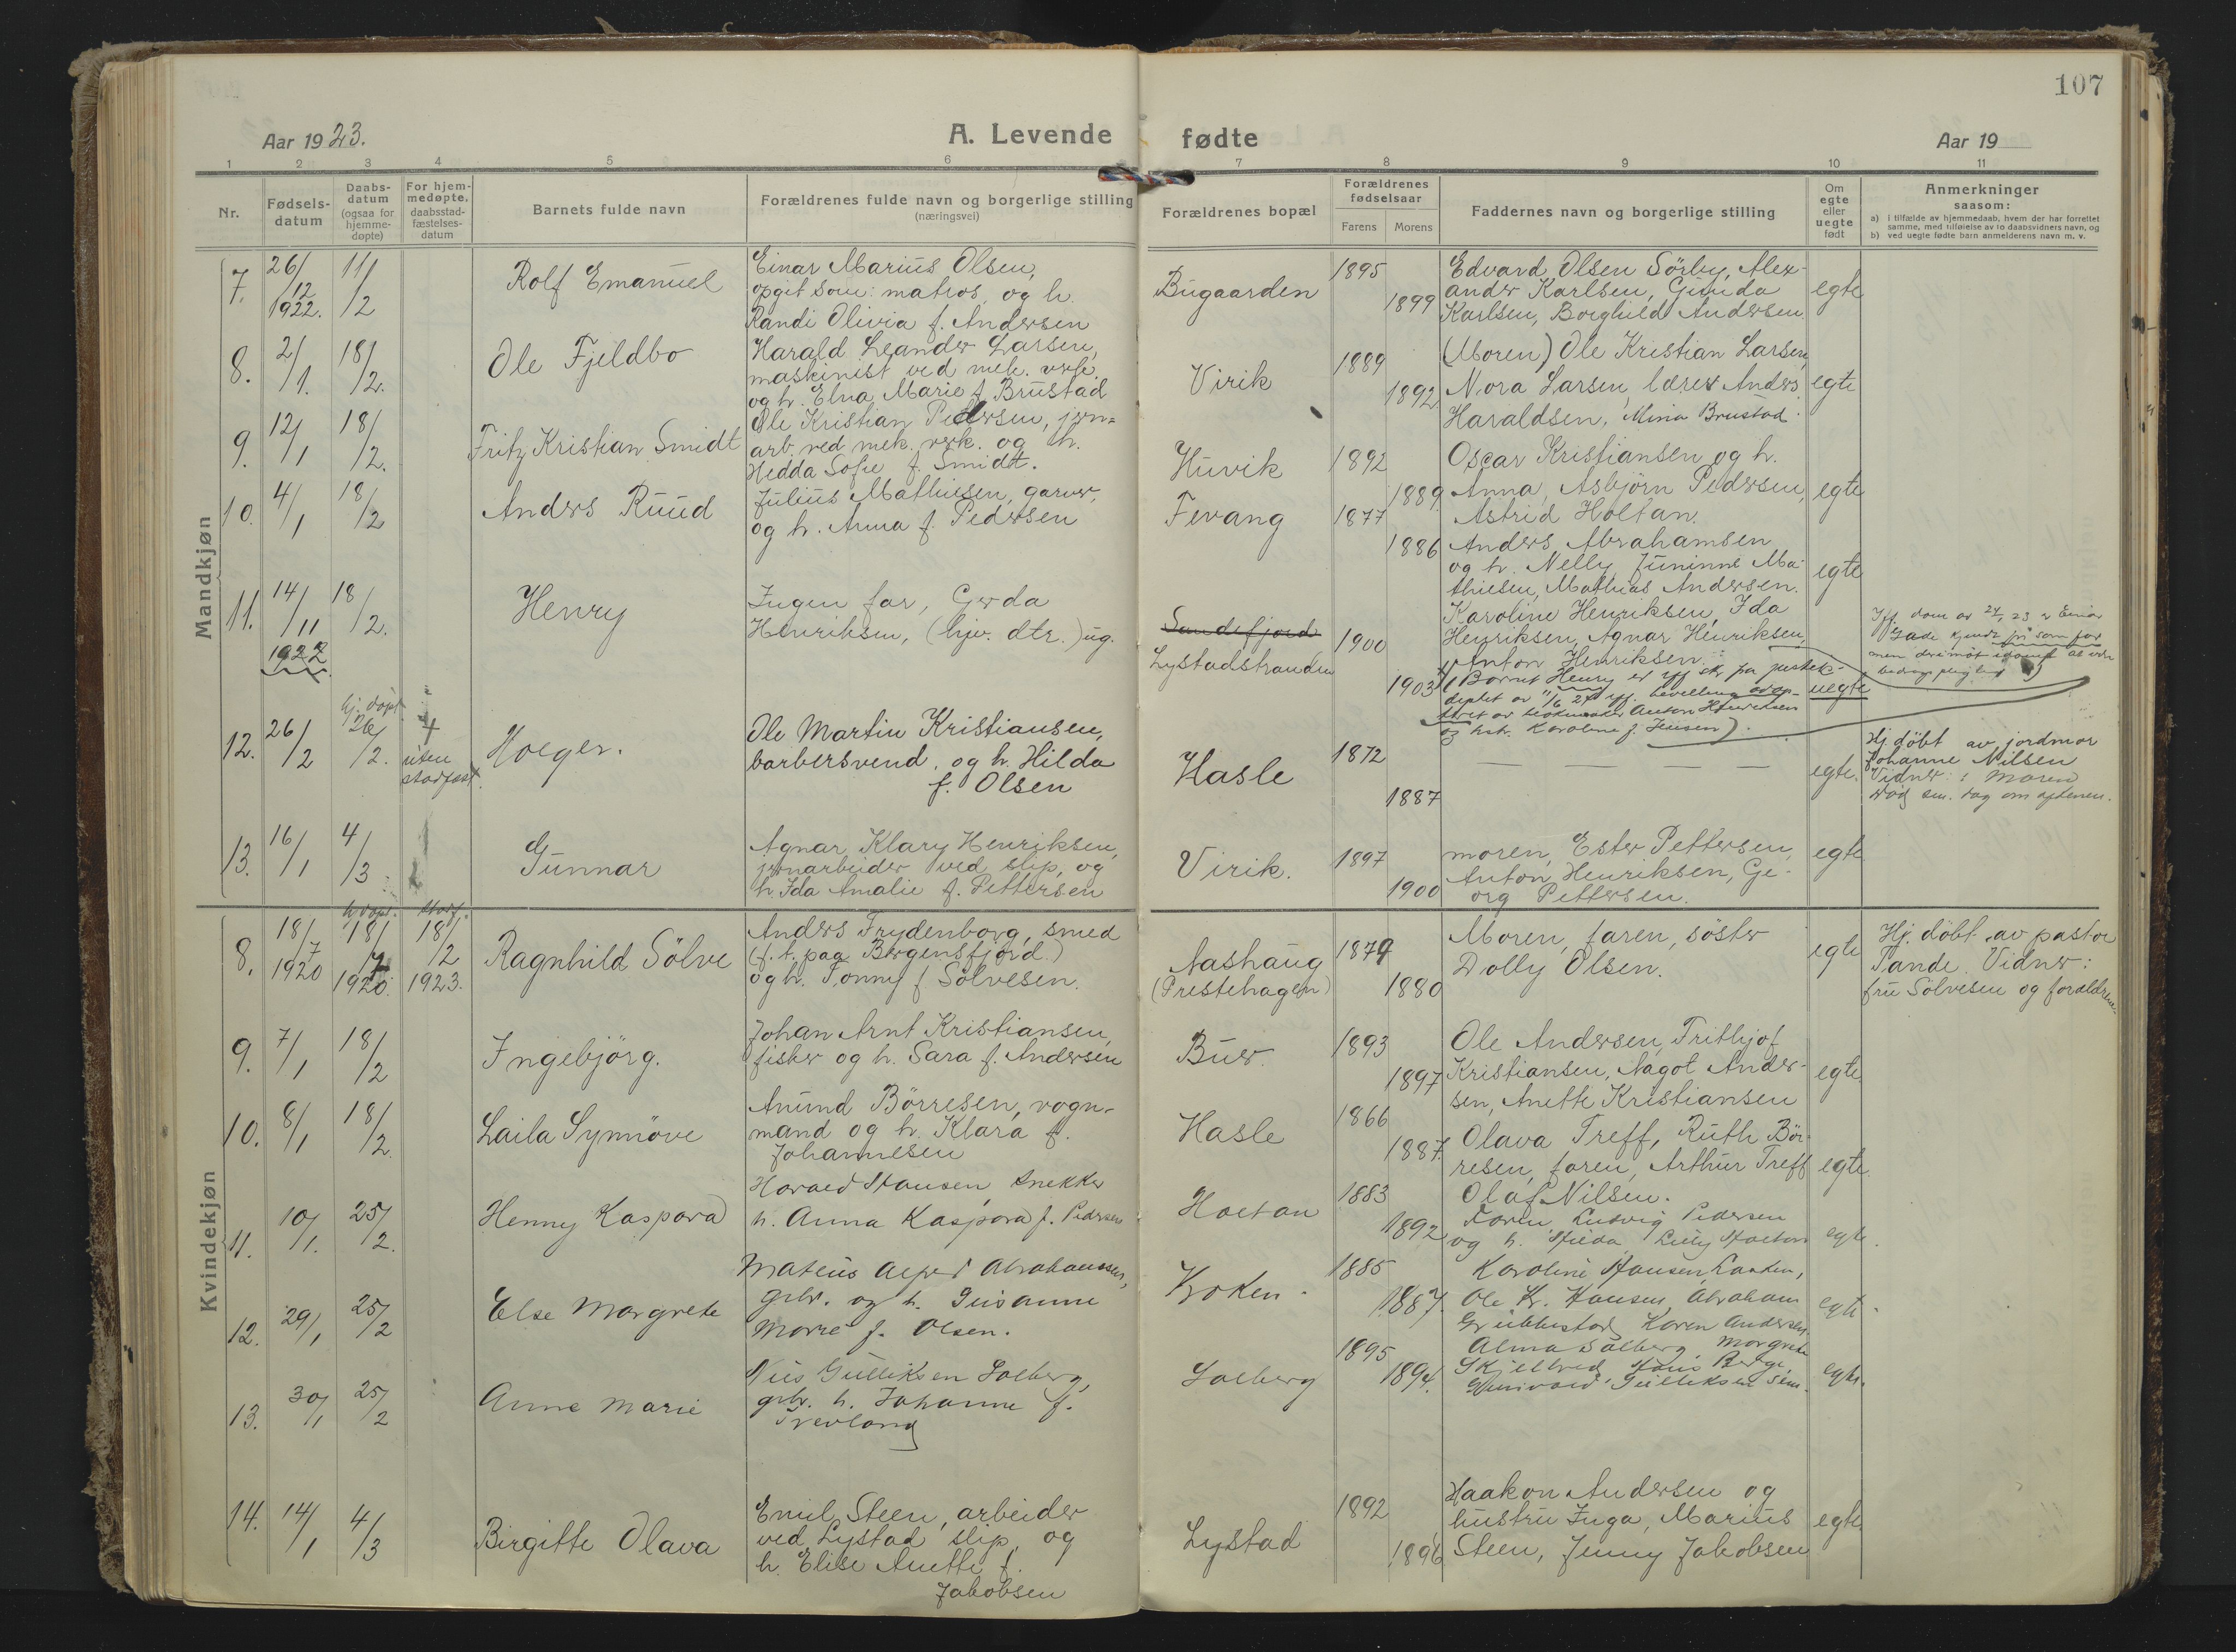 107
Aar 1923.
A. Levende fødte
Aar 19
1 2 3 4 5 6 7 8 9 10 11
Nr.
Fødsels-
datum
Daabs-
datum
(ogsaa for
hjemme-
døpte)
For hjem-
medøpte,
daabsstad-
fæstelses-
datum
Barnets fulde navn
Forældrenes fulde navn og borgerlige stilling
(næringsvei)
Forældrenes bopæl
Forældrenes
fødselsaar
Farens Morens
Faddernes navn og borgerlige stilling
Om
egte
eller
uegte
født
Anmerkninger
saasom:
a) i tilfælde av hjemmedaab, hvem der har forrettet
samme, med tilføielse av to daabsvidners navn, og
b) ved uegte fødte barn anmelderens navn m. v.
Mandkjøn
7.
26/12
1922.
11/2
Rolf Emanuel
Einar Marius Olsen,
opgit som: matros, og h.
Randi Olivia f. Andersen
Bugaarden
1895
1899
Edvard Olsen Sörby, Alex-
ander Karlsen, Gunda
Karlsen, Borghild Andersen
egte
8.
2/1.
18/2.
Ole Fjeldbo
Harald Leander Larsen,
maskinist ved mek. verk.
og h. Elna Marie f. Brustad
Virik
1889
1892
(Moren) Ole Kristian Larsen,
Nora Larsen, lærer Anders
Haraldsen, Mina Brustad.
egte
9.
12/1
18/2.
Fritz Kristian Smidt
Ole Kristian Pedersen, jern-
arb. ved mek. verk. og h.
Hedda Sofie f. Smidt.
Huvik
1892
1889.
Oscar Kristiansen og h.
Anna, Asbjørn Pedersen,
Astrid Holtan.
egte
10.
4/1
18/2
Anders Ruud
Julius Mathiesen, garver,
og h. Anna f. Pedersen
Fevang
1877
1886
Anders Abrahamsen
og h. Nelly Juninne Ma-
thiesen, Mathias Andersen.
egte
11.
14/11
1922
18/2.
Henry
Ingen far, Gerda
Henriksen, (hjv. dtr.) ug.
Sandefjord
Lystadstranden
1900
1903
Karoline Henriksen, Ida
Henriksen, Agnar Henriksen,
Anton Henriksen.
(Barnet Henry er
Anton Henriksen
og Karoline f. Jensen).
uegte
12.
26/2
hj. døpt
26/2.
uten
stadfæst.
Holger.
Ole Martin Kristiansen,
barbersvend, og h. Hilda
f. Olsen
Hasle
1872
1887
— — — —
egte.
Hj. döbt av jordmor
Johanne Nilsen
Vidner: moren
Död sm. dag om aftenen.
13.
16/1
4/3
Gunnar
Agnar Klary Henriksen,
jernarbeider ved slip, og
h. Ida Amalie f. Pettersen
Virik.
1897
1900
moren, Ester Pettersen,
Anton Henriksen, Ge-
org Pettersen.
egte
Kvindekjøn
8.
18/7
1920
hj. döpt.
18/7
1920.
stadf.
18/2
1923.
Ragnhild Sölve
Anders Frydenborg, smed
(f. t. paa Bergensfjord.)
og h. Tonny f. Sölvesen.
Aashaug
(Prestehagen)
1879
1880
Moren, faren, söster
Dolly Olsen.
egte
Hj. döbt av pastor
Tande. Vidner:
fru Sölvesen og forældrene
9.
7/1
18/2
Ingebjörg.
Johan Arnt Kristiansen,
fisker og h. Sara f. Andersen
Buer.
1893
1897
Ole Andersen, Frithjof
Kristiansen, Nagot Ander-
sen, Anette Kristiansen
egte
10.
8/1
18/2.
Laila Synnöve
Anund Börresen, vogn-
mand og h. Klara f.
Johannesen
Hasle
1866
1887.
Olava Treff, Ruth Bör-
resen, faren, Arthur Treff
Olaf Nilsen.
egte
11.
10/1.
25/2.
Henny Kaspara
Harald Hansen, snekker
h. Anna Kaspara f. Pedersen
Holtan
1883
1892
Faren, Ludvig Pedersen
og h. Hilda, Lilly Holtan
egte.
12.
29/1
25/2
Else Margrete
Mateus Alfred Abrahamsen,
grbr. og h. Susanne
Marie f. Olsen.
Kroken.
1885
1887.
Karoline Hansen Lasken,
Ole Kr. Hansen, Abraham
Grubbestad, Karen Andersen.
egte
13.
30/1
25/2
Anne Marie
Nils Gulliksen Solberg,
grbr. h. Johanne f.
Trevland
Solberg
1895
1894.
Alma Solberg, Margrete
Skjelbred, Hans Berge,
Gulliksen sm.
egte.
14.
14/1
4/3
Birgitte Olava
Emil Steen, arbeider
ved Lystad slip, og
h. Elise Anette f.
Jakobsen
Lystad
1892
1896
Haakon Andersen og
hustru Inga, Marius
Steen, Jenny Jakobsen
egte